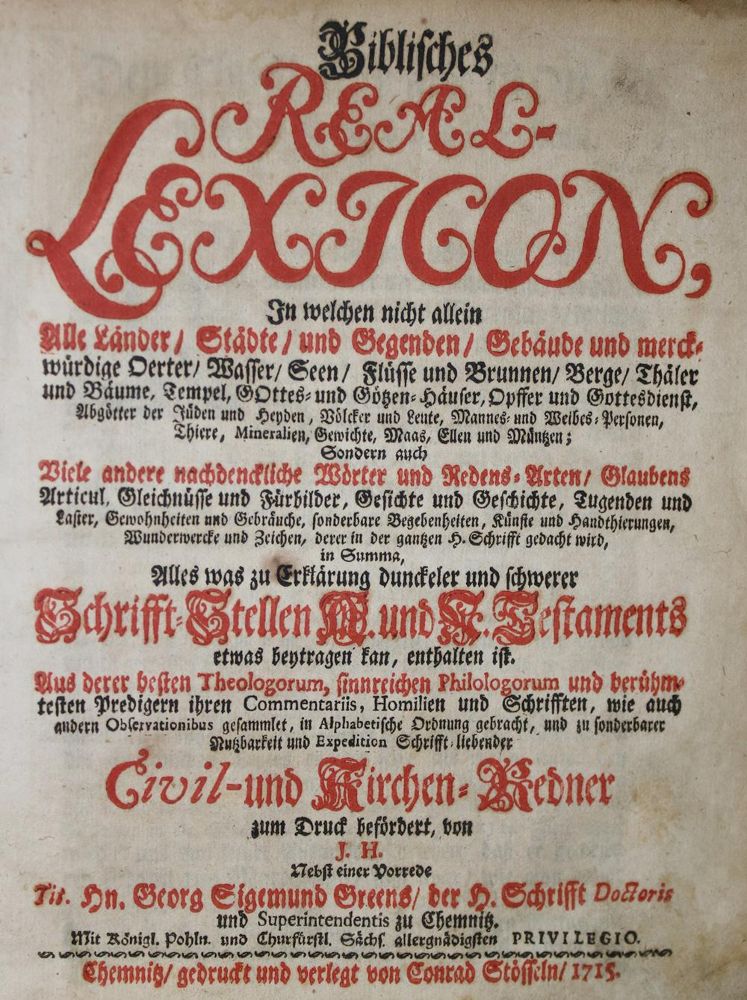 Biblisches
REAL-
LEXICON,
In welchen nicht allein
Alle Länder/ Städte/ und Gegenden/ Gebäude und merck-
würdige Oerter/ Wasser/ Seen/ Flüsse und Brunnen/ Berge/ Thäler
und Bäume, Tempel, GOttes- und Götzen-Häuser, Opffer und Gottesdienst,
Abgötter der Jüden und Heyden, Völcker und Leute, Mannes- und Weibes-Personen,
Thiere, Mineralien, Gewichte, Maas, Ellen und Müntzen;
Sondern auch
Viele andere nachdenckliche Wörter und Redens-Arten/ Glaubens
Articul, Gleichnüsse und Fürbilder, Gesichte und Geschichte, Tugenden und
Laster, Gewohnheiten und Gebräuche, sonderbare Begebenheiten, Künste und Handthierungen,
Wunderwercke und Zeichen, derer in der gantzen H. Schrifft gedacht wird,
in Summa,
Alles was zu Erklärung dunckeler und schwerer
Schrifft-Stellen A. und N. Testaments
etwas beytragen kan, enthalten ist.
Aus derer besten Theologorum, sinnreichen Philologorum und berühm-
testen Predigern ihren Commentariis, Homilien und Schrifften, wie auch
andern Observationibus gesammlet, in Alphabetische Ordnung gebracht, und zu sonderbarer
Nutzbarkeit und Expedition Schrifft-liebender
Civil- und Kirchen-Redner
zum Druck befördert, von
J. H.
Nebst einer Vorrede
Tit. Hn. Georg Sigemund Greens/ der H. Schrifft Doctoris
und Superintendentis zu Chemnitz.
Mit Königl. Pohln. und Churfürstl. Sächs. allergnädigsten PRIVILEGIO.
Chemnitz/ gedruckt und verlegt von Conrad Stösseln/ 1715.